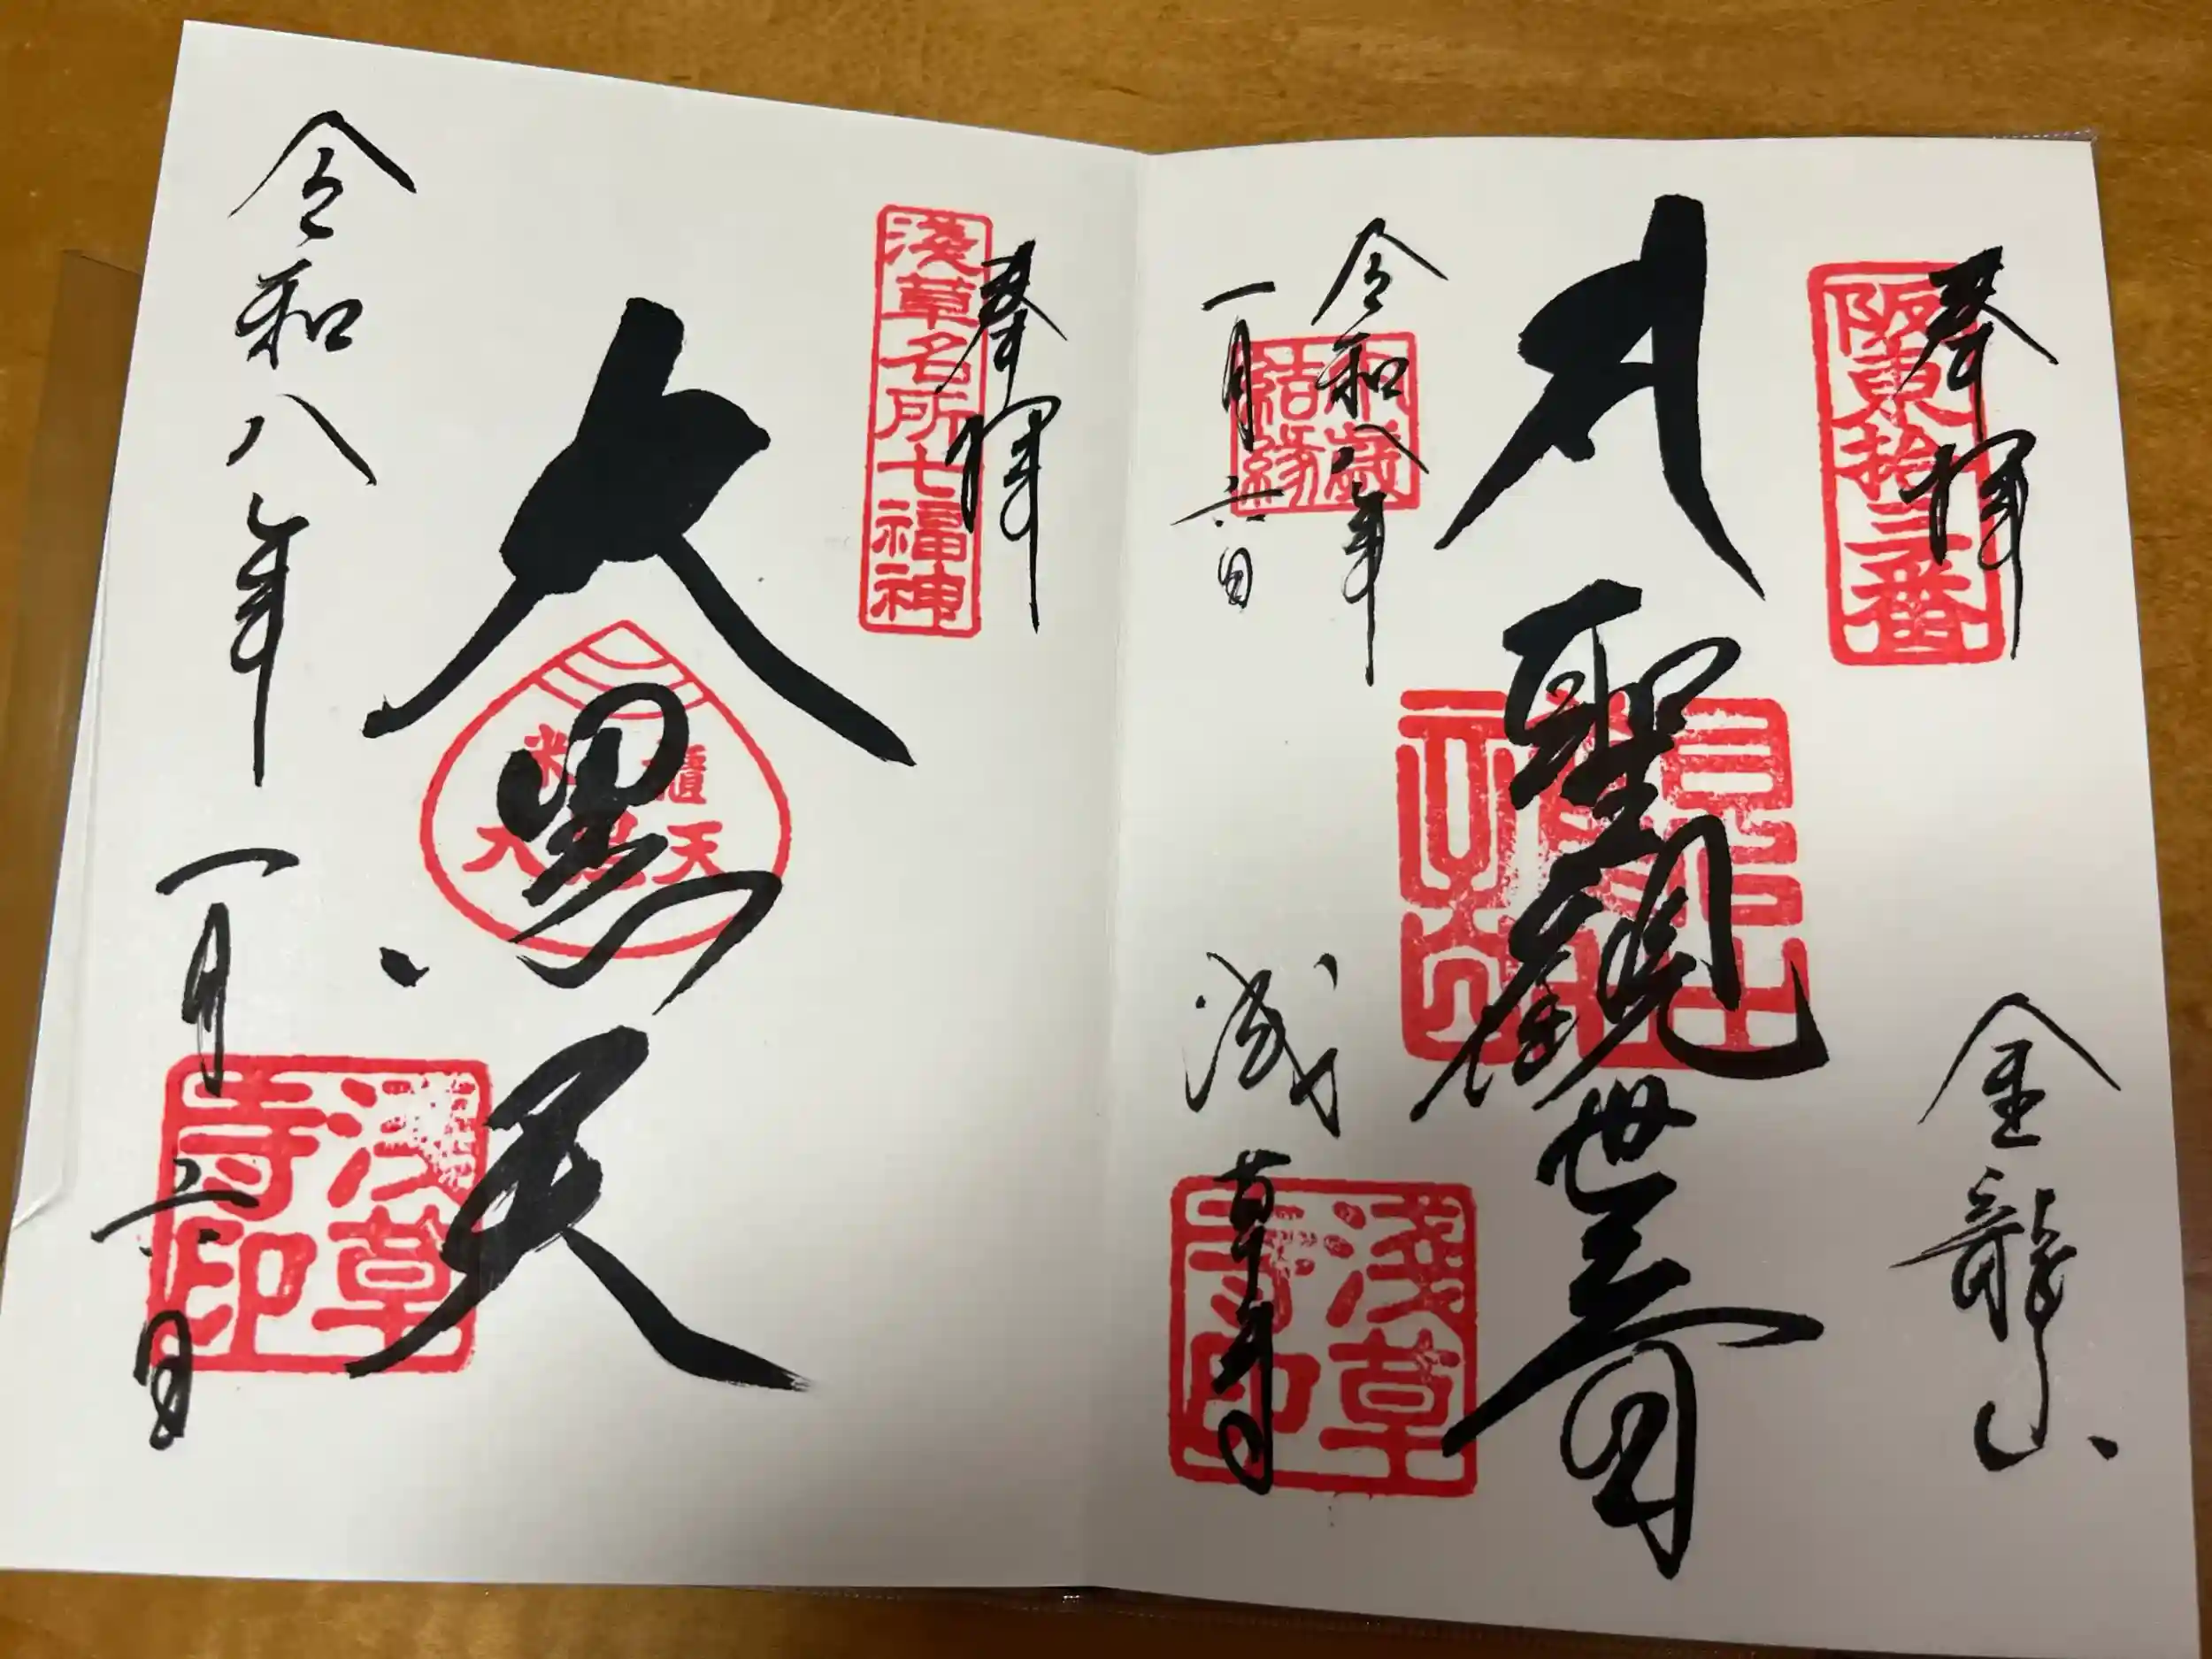 奉拝
阪東拾三番
金龍山
聖観世音
令和八年
一月六日
結縁
浅草寺
淺草寺印
奉拝
淺草名所七福神
大黒天
米櫃
大黒天
令和八年
一月六日
淺草寺印